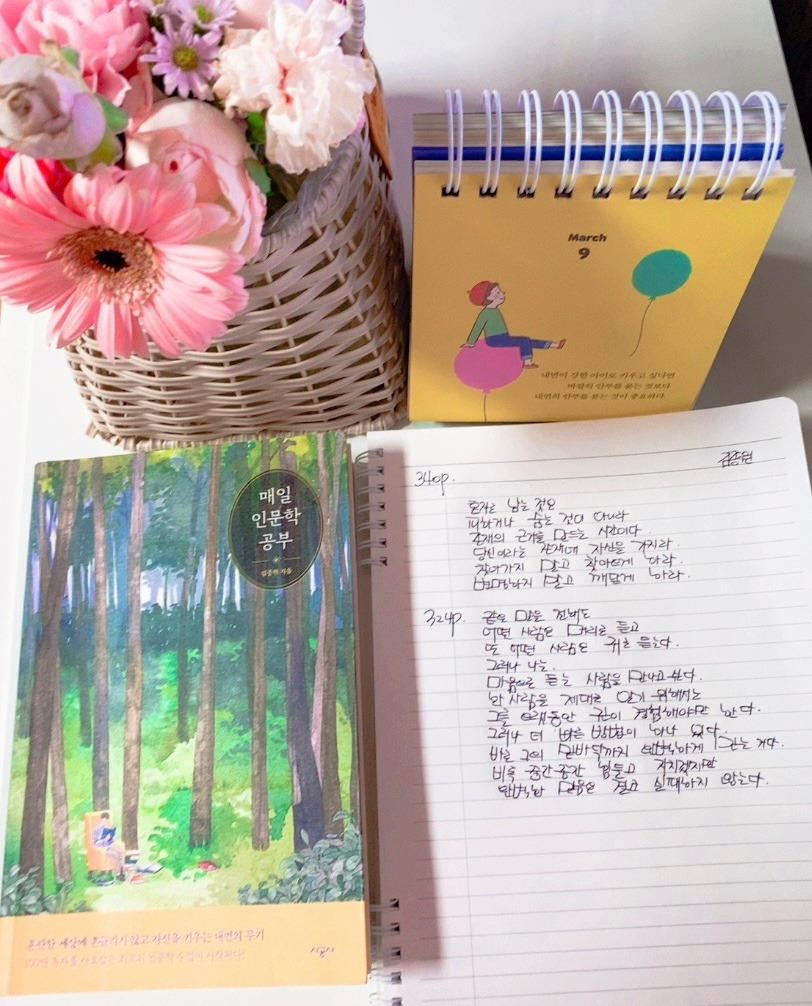 March
9
내면이 강한 아이로 키우고 싶다면
바깥의 안부를 묻는 것보다
내면의 안부를 묻는 것이 중요하다.
매일
인문학
공부
김종원 지음
혼란한 세상에 흔들리지 않고 자신을 키우는 내면의 무기
100만 독자를 사로잡은 최고의 인문학 수업이 시작된다!
시공사
김종원
340p.
혼자로 남는 것은
피하거나 숨는 것이 아니라
존재의 근거를 만드는 시간이다.
당신이라는 존재에 자신을 가지라.
찾아가지 말고 찾아오게 하라.
변명하지 말고 깨닫게 하라.
324p. 같은 말을 전해도
어떤 사람은 머리로 듣고
또 어떤 사람은 귀로 듣는다.
그러나 나는.
마음으로 듣는 사람을 만나고 싶다.
한 사람을 제대로 알기 위해서는
그를 오랫동안 깊이 경험해야만 한다.
그러나 더 빠른 방법이 하나 있다.
바로 그의 밑바닥까지 완벽하게 믿는 거다.
비록 중간중간 힘들고 지치겠지만
완벽한 믿음은 결코 실패하지 않는다.